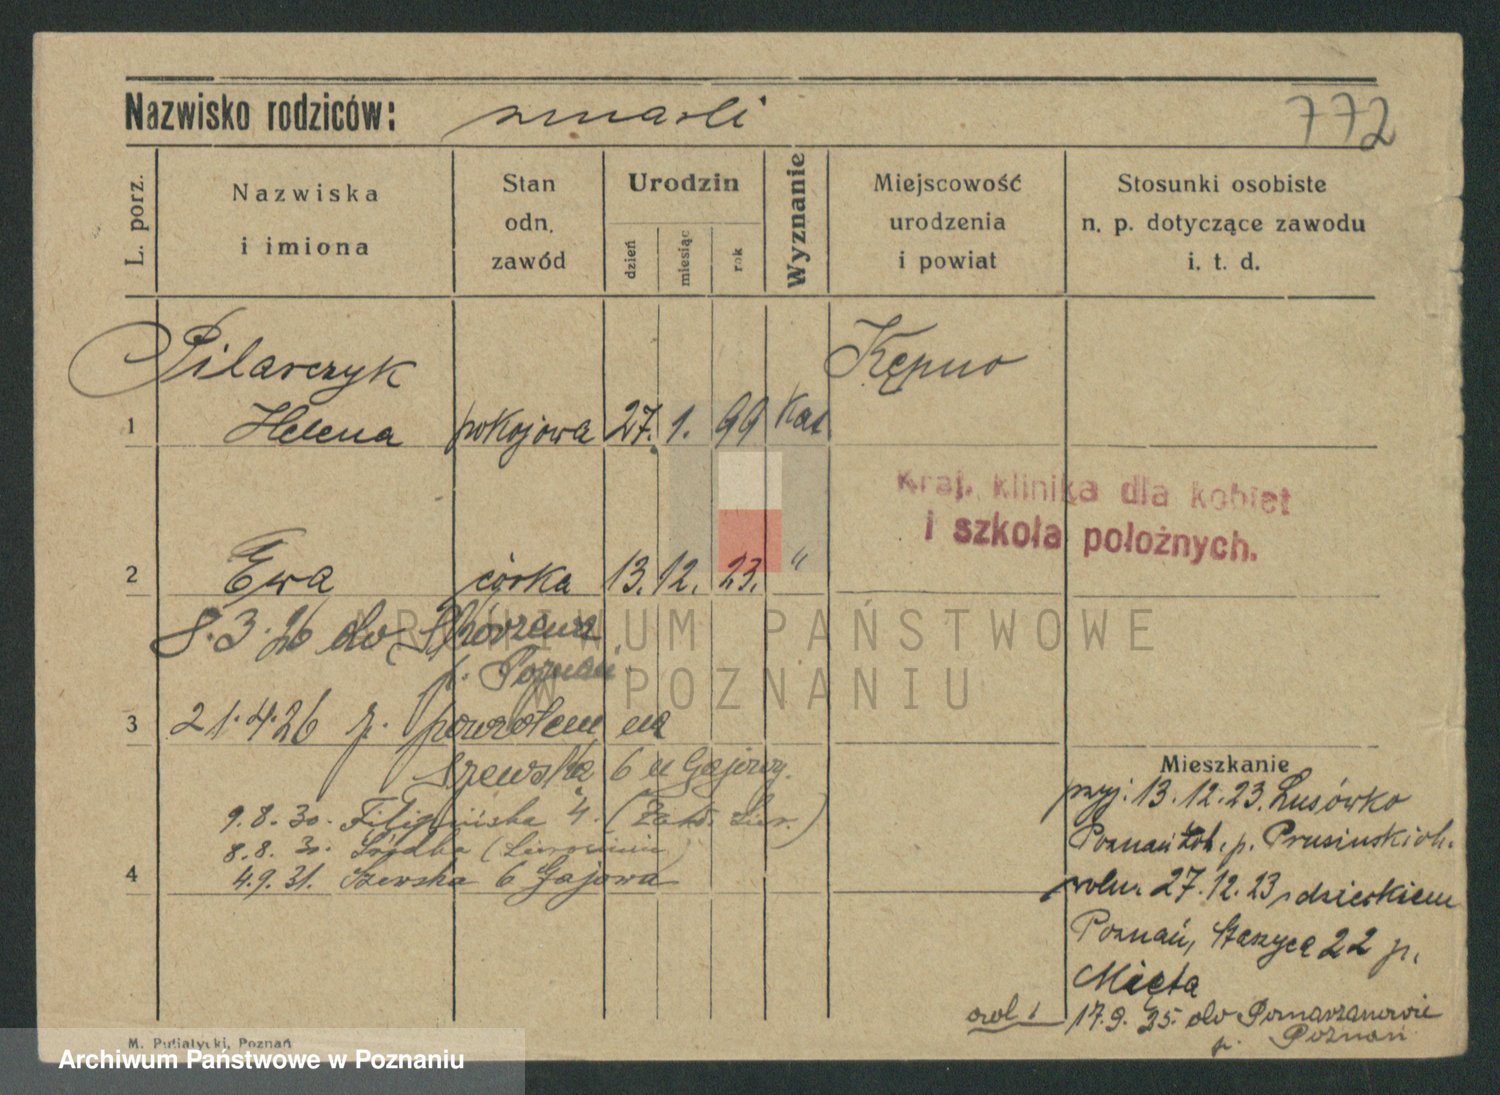 Nazwisko rodziców: zmarli
772
L. porz.
Nazwiska
i imiona
Stan
odn.
zawód
Urodzin
dzień
miesiąc
rok
Wyznanie
Miejscowość
urodzenia
i powiat
Stosunki osobiste
n. p. dotyczące zawodu
i. t. d.
Pilarczyk Kępno
1 Helena pokojowa 27. 1. 99 Kat
Kraj. klinika dla kobiet
i szkoła położnych.
2 Ewa córka 13. 12. 23. "
8.3.26 do Skórzewa
p. Poznań
ARCHIWUM PAŃSTWOWE
W POZNANIU
3 21.4.26 z powrotem na
Szewska 6 u Gajowy.
9.8.30. Filipińska 4.
8.8.30. Śródka
4 4.9.31. Szewska 6 Gajowa
Mieszkanie
przyj. 13.12.23. Lusówko
Poznań Zch. p. Prusinskich.
zwoln. 27.12.23 z dzieckiem
Poznań, Staszyca 22 p.
Mięta
17.9.25. do Pomarzanowic
p. Poznań
M. Putiatycki, Poznań
Archiwum Państwowe w Poznaniu